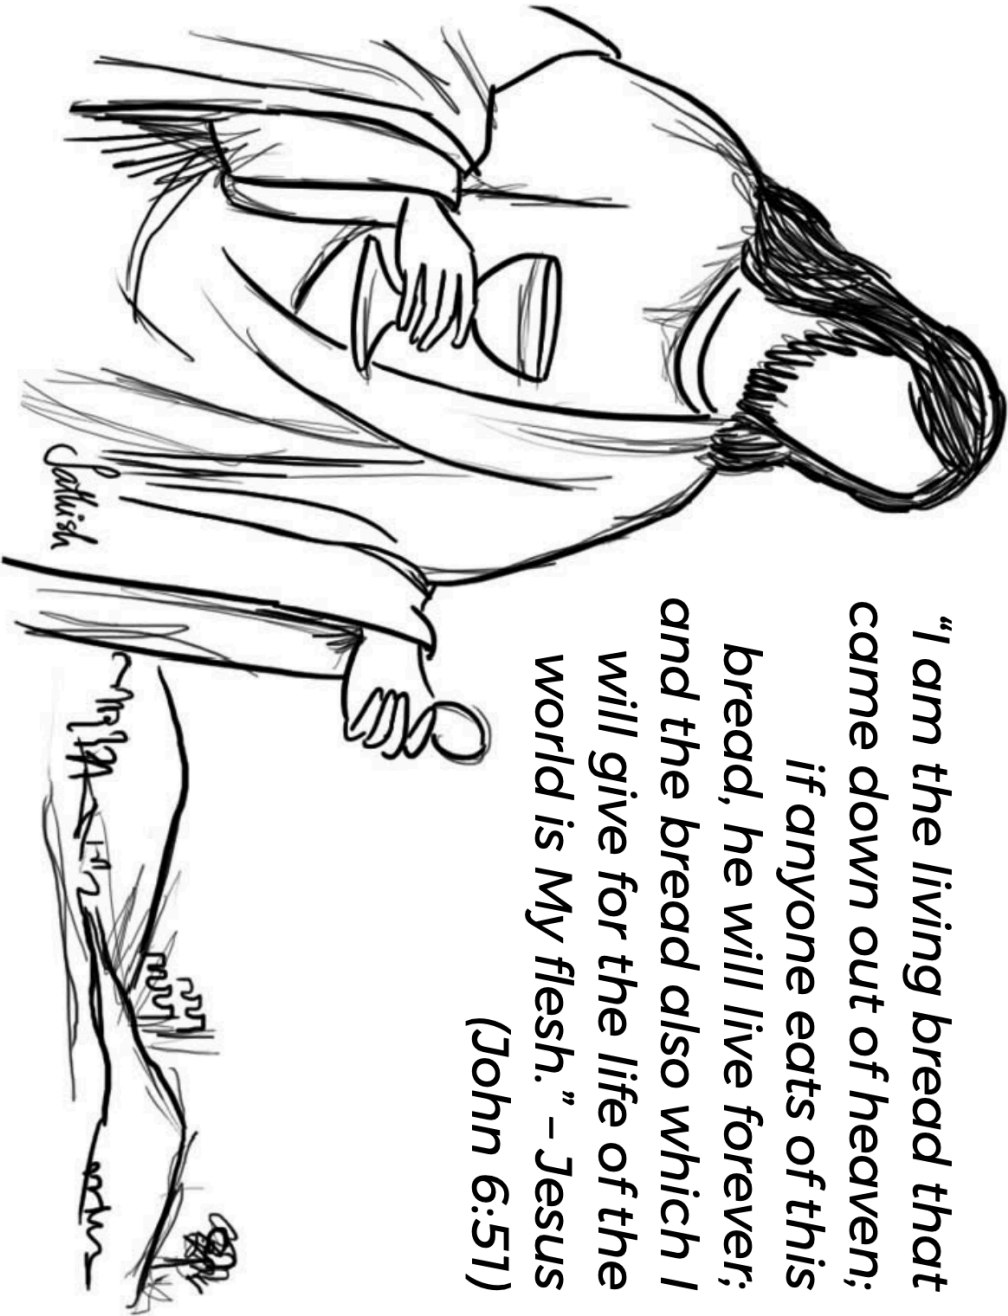 “I am the living bread that
came down out of heaven;
if anyone eats of this
bread, he will live forever;
and the bread also which I
will give for the life of the
world is My flesh.” – Jesus
(John 6:51)
Sathish